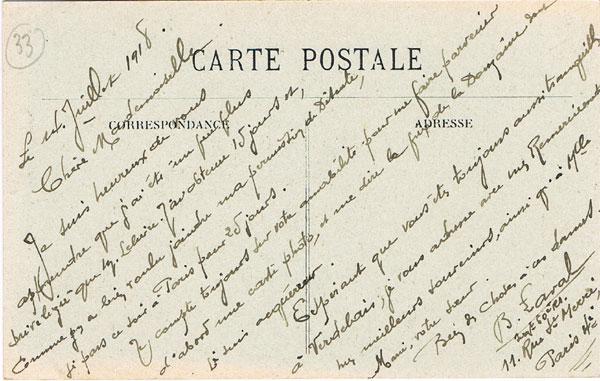 33
CARTE POSTALE
CORRESPONDANCE
ADRESSE
Le 14 Juillet 1918.
Chère Mademoiselle
Je suis heureux de vous
apprendre que j'ai été un peu plus
privilégié que M. J'ai obtenu 15 jours et,
comme on a bien voulu joindre ma permission de Détente,
je pars ce soir à Paris pour 25 jours.
J'y compte toujours sur votre amabilité pour me faire parvenir
d'abord une carte photo, et me dire le prix de la Douzaine dont
je suis acquéreur.
Espérant que vous êtes toujours aussi tranquille
à Verdchais, je vous adresse avec mes Remerciements
mes meilleurs souvenirs, ainsi qu'à Mlle
Marie, votre sœur.
Bien des Choses à ces dames.
B. Laval
11. Rue St Merri,
Paris 4e